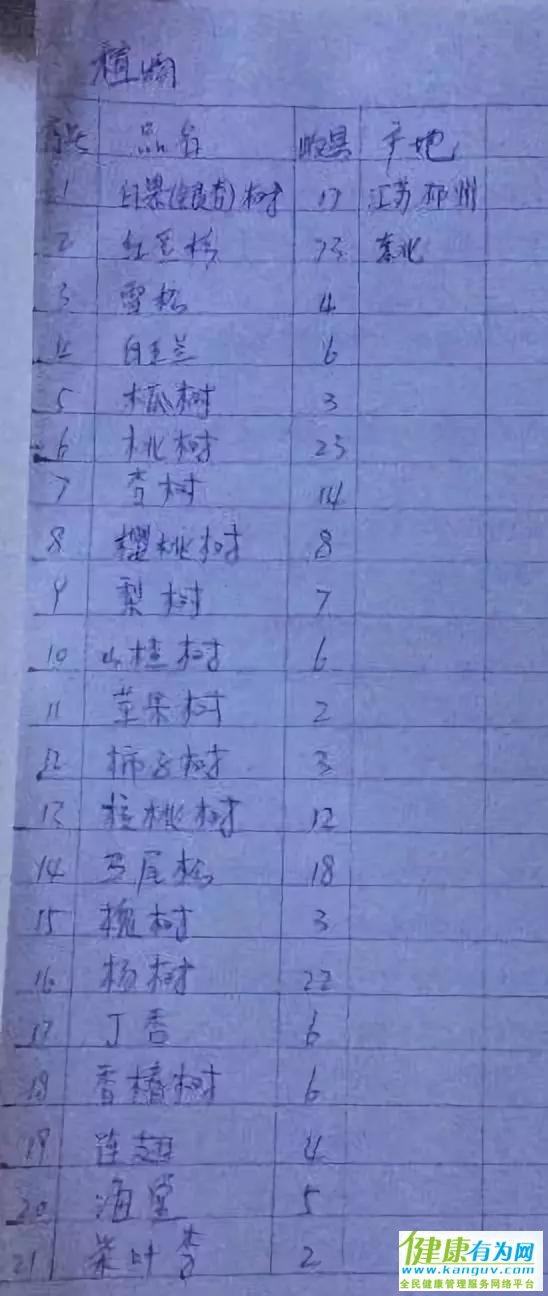 植物
序号 品名 数量 产地
1 白果(银杏)树 17 江苏邳州
2 红豆杉 73 东北
3 雪松 4
4 白玉兰 6
5 木瓜树 3
6 桃树 23
7 杏树 14
8 樱桃树 8
9 梨树 7
10 山楂树 6
11 苹果树 2
12 柿子树 3
13 核桃树 12
14 马尾松 18
15 槐树 3
16 杨树 22
17 丁香 6
18 香椿树 6
19 连翘 4
20 海棠 5
21 紫叶李 2
健康有为网
www.kanguv.com
全民健康管理服务网络平台